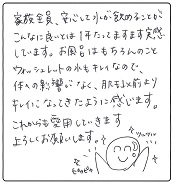 家族全員、安心して水が飲めることが
こんなに良いとは1年たってますます実感
しています。お風呂はもちろんのこと
ウォシュレットの水もキレイなので、
体への影響がなく、肌も以前より
キレイになってきたように感じます。
これからも愛用していきます
よろしくお願いします。
ツルツル